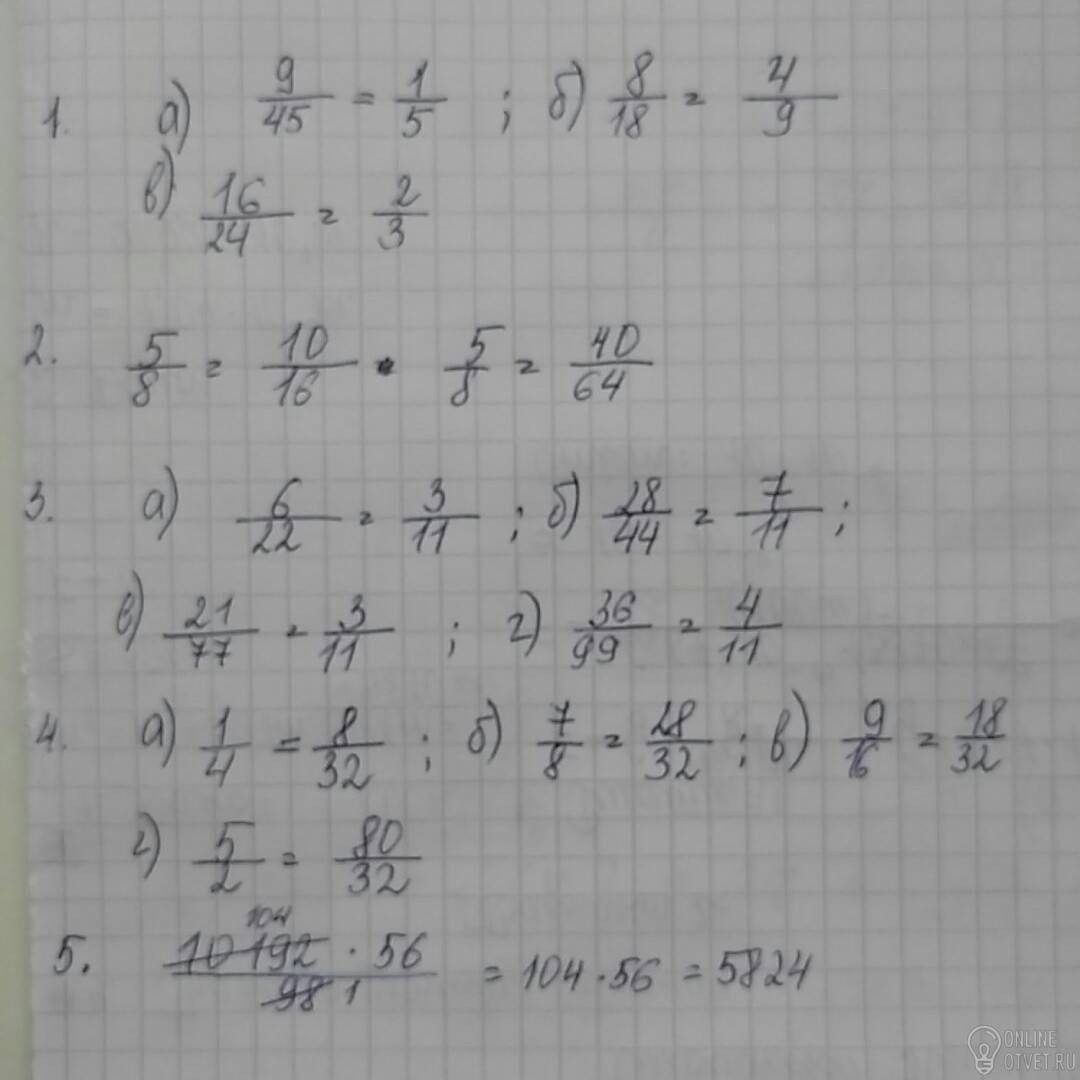 1. а) 9/45 = 1/5 ; б) 8/18 = 4/9
в) 16/24 = 2/3
2. 5/8 = 10/16 . 5/8 = 40/64
3. а) 6/22 = 3/11 ; б) 28/44 = 7/11 ;
в) 21/77 = 3/11 ; г) 36/99 = 4/11
4. а) 1/4 = 8/32 ; б) 7/8 = 28/32 ; в) 9/16 = 18/32
г) 5/2 = 80/32
104
5. 10192 · 56 / 98 1 = 104 · 56 = 5824
ONLINE
OTVET.RU